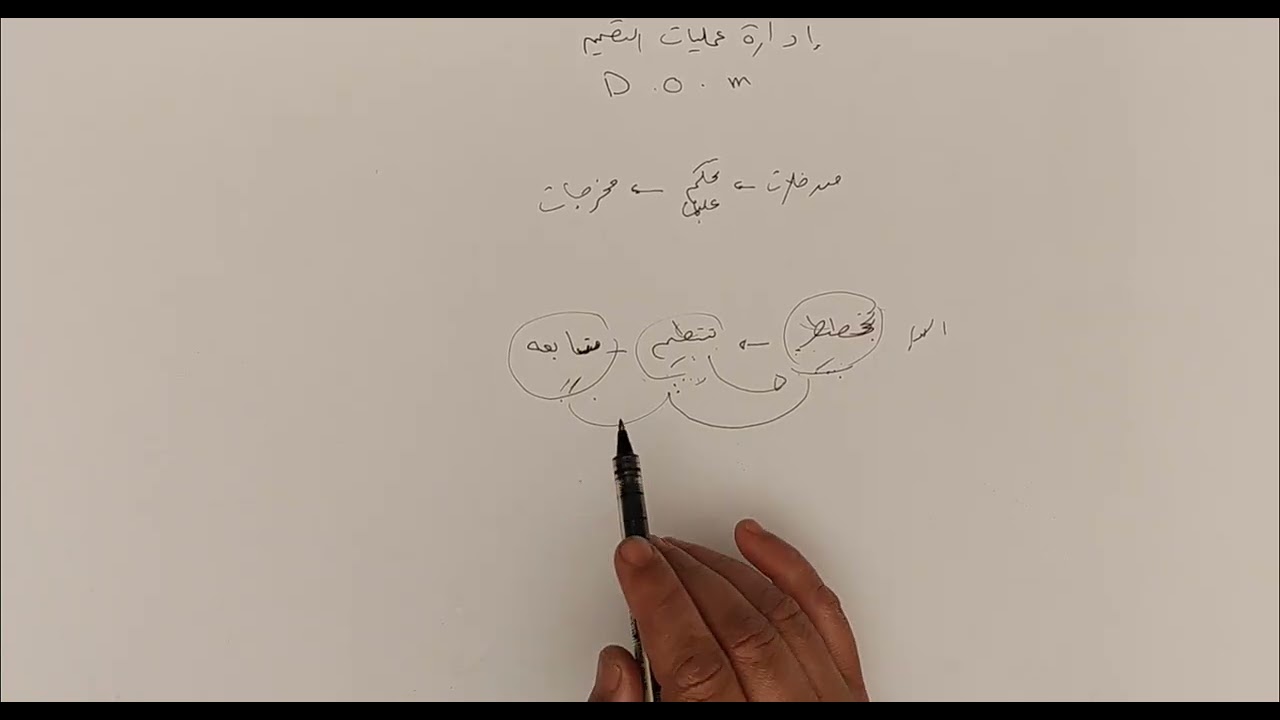 إدارة عمليات التصميم
D.O.m
مدخلات ← محكم ← مخرجات
عليها
تخطيط ← تنظيم ← متابعه